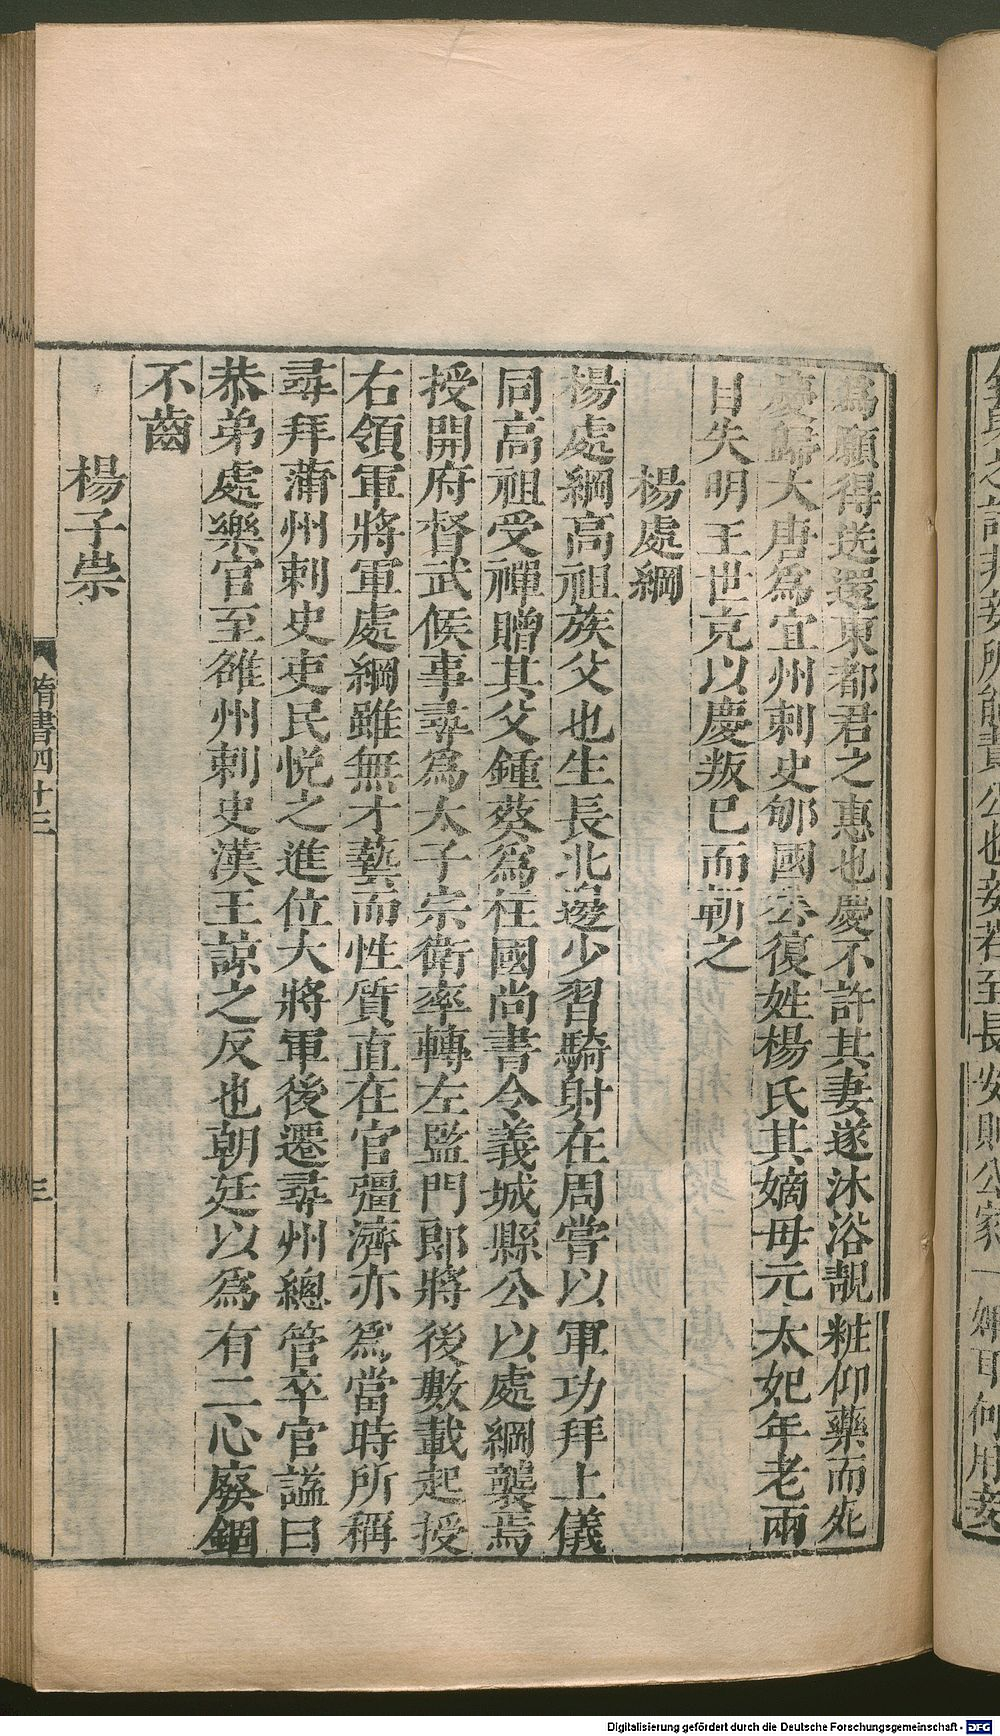 爲願得送還東都君之惠也慶不許其妻遂沐浴靚粧仰藥而死
慶歸大唐爲宜州刺史郇國公復姓楊氏其嫡母元太妃年老兩
目失明王世充以慶叛已而斬之
楊處綱
楊處綱高祖族父也生長北邊少習騎射在周嘗以軍功拜上儀
同高祖受禪贈其父鍾葵爲柱國尚書令義城縣公以處綱襲焉
授開府督武候事尋爲太子宗衛率轉左監門郎將後數載起授
右領軍將軍處綱雖無才藝而性質直在官彊濟亦爲當時所稱
尋拜蒲州刺史吏民悅之進位大將軍後遷尋州總管卒官謚曰
恭弟處樂官至雒州刺史漢王諒之反也朝廷以爲有二心廢錮
不齒
楊子祟
隋書四十三
三
公也妾若至長安則公家一婢耳何用妾
Digitalisierung gefördert durch die Deutsche Forschungsgemeinschaft - DFG